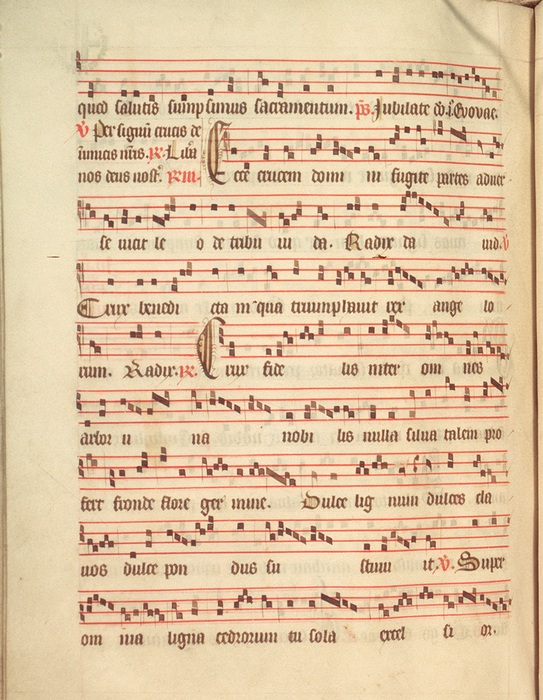 quod salutis sumpsimus sacramentum. ps. Jubilate
V Per signū crucis de
inimicis nr̄is. R. Libā
nos deus nost̄.
Ecce crucem domi ni fugite partes aduer
se uicit le o de tribu iu da. Radix da uid. V
Crux benedi cta in qua triumphauit rex ange lo
rum. Radix. R. Crux fide lis inter om nes
arbor u na nobi lis nulla silua talem pro
fert fronde flore ger mine. Dulce lig num dulces cla
uos dulce pon dus su stinu it. V. Super
om nia ligna cedrorum tu sola excel si or.